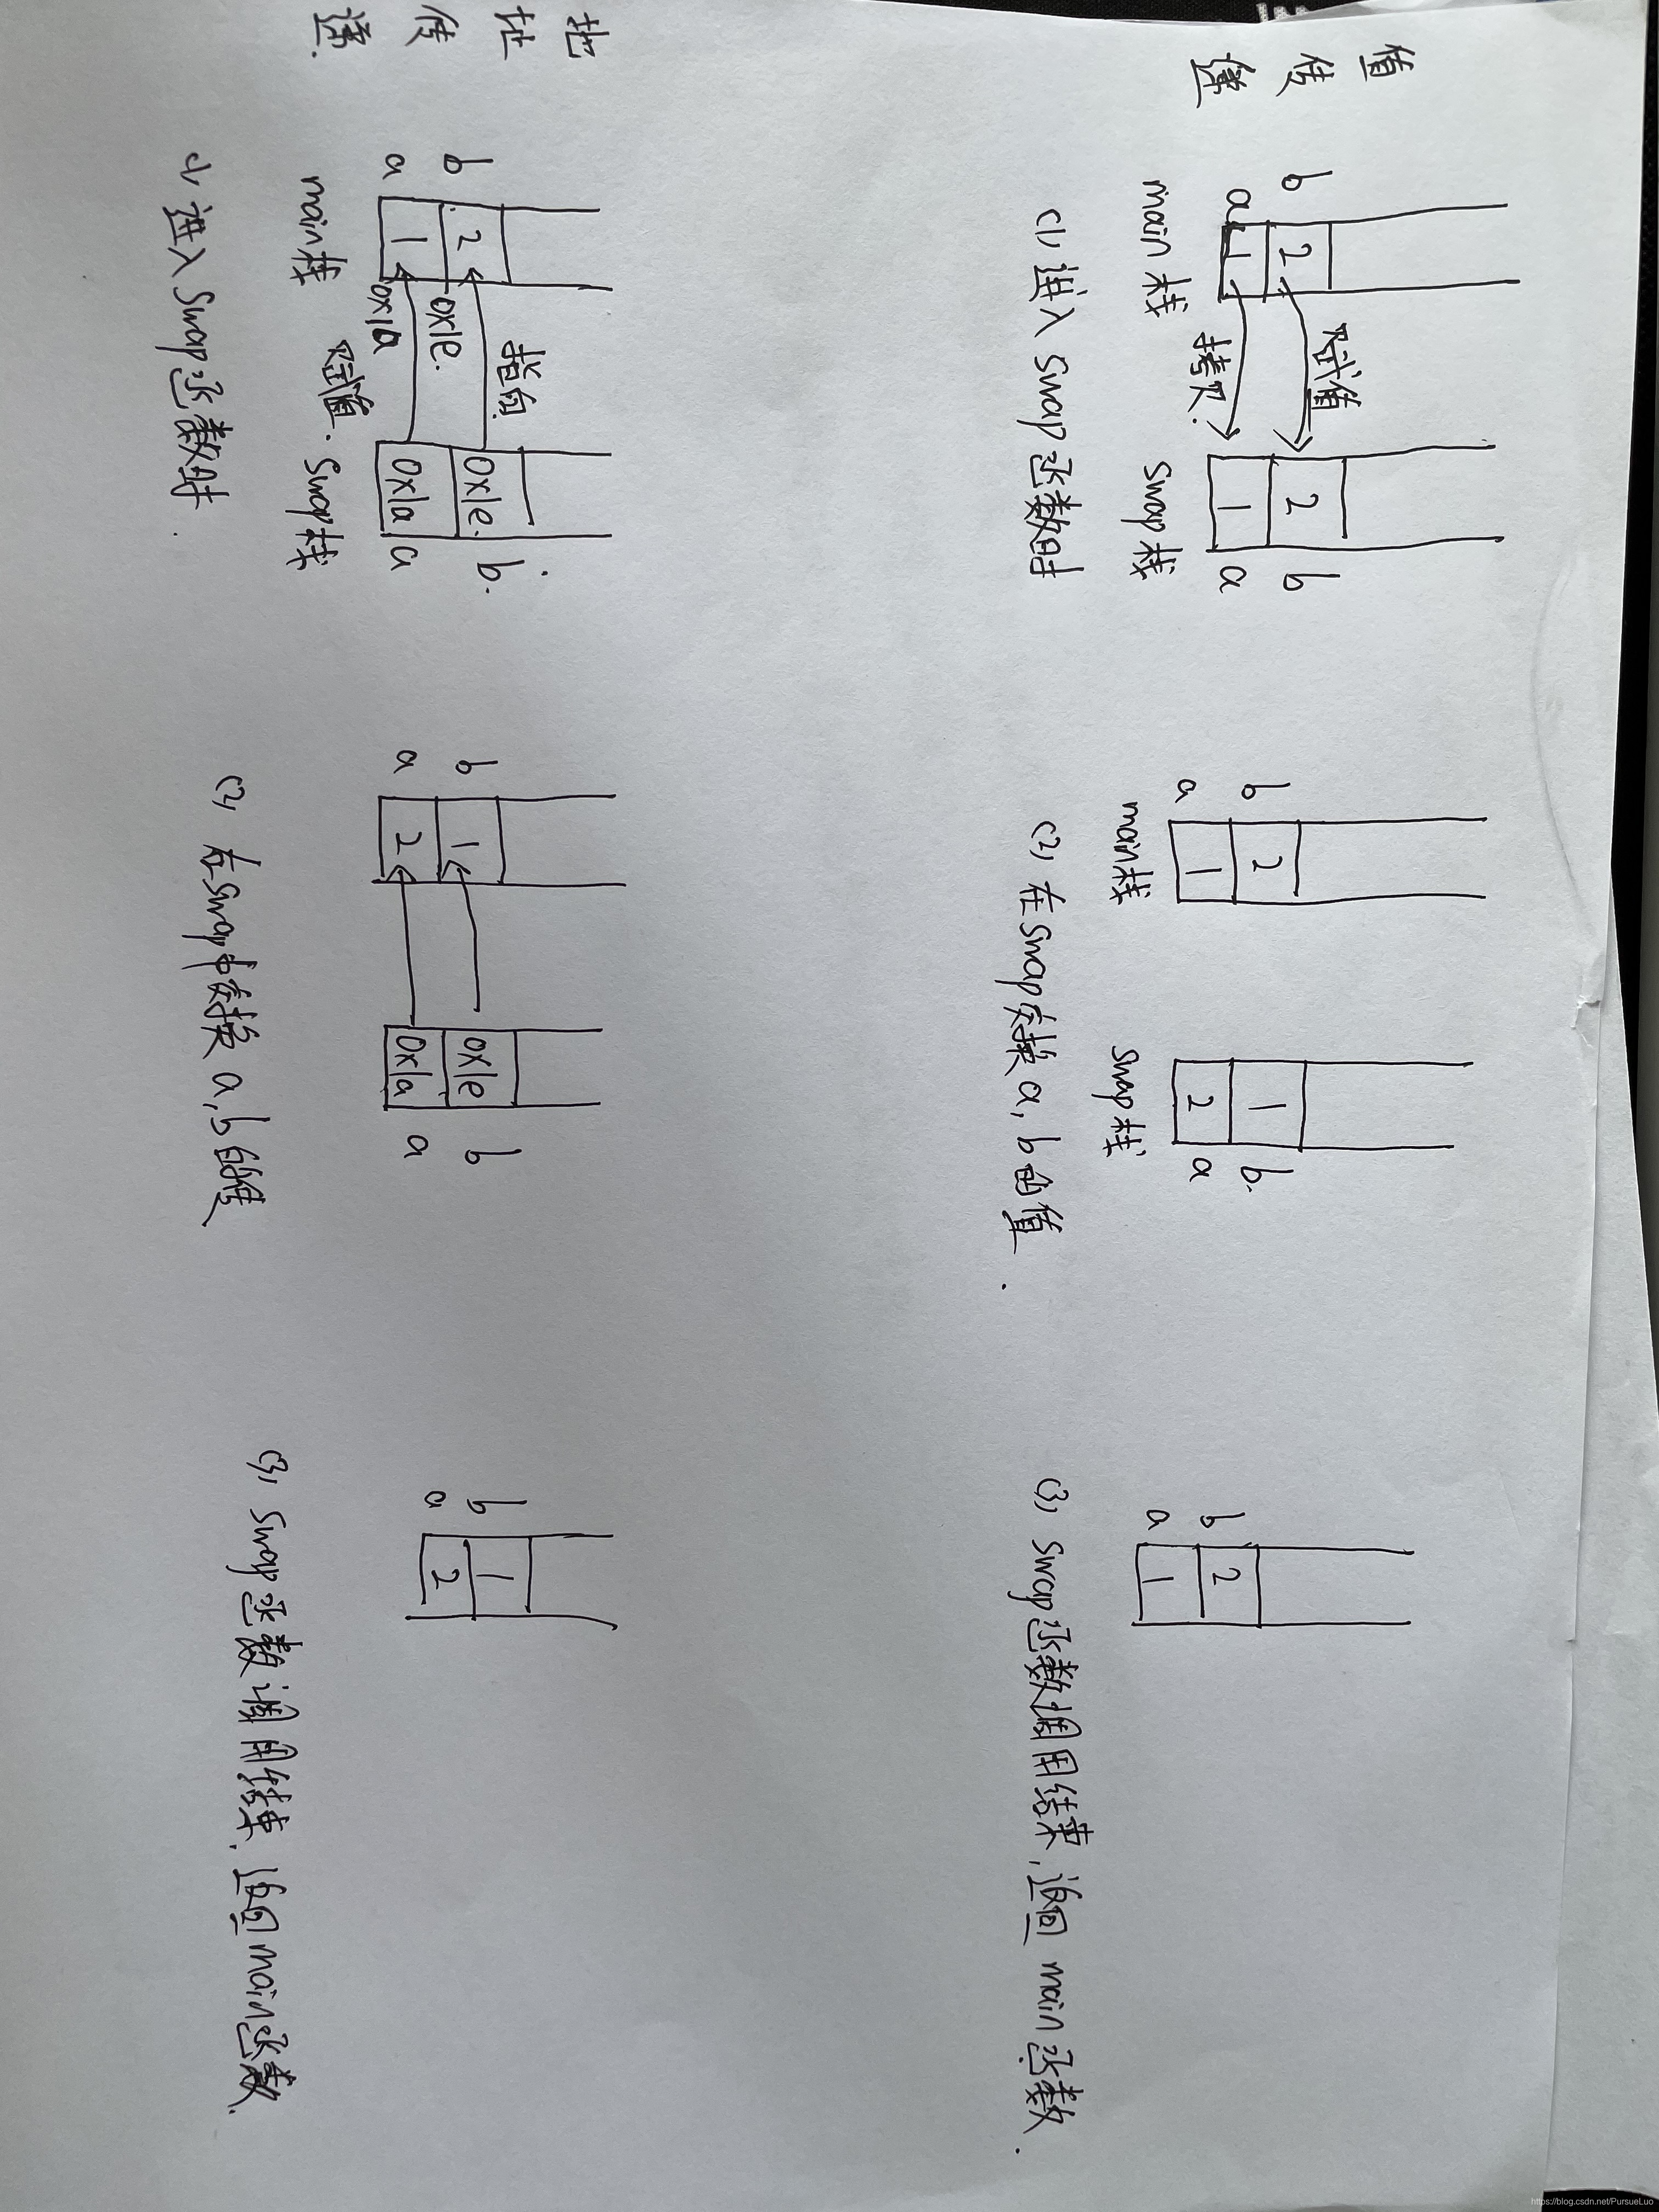 值传递
b 2
a 1
赋值
拷贝.
2 b
1 a
main栈
swap栈
(1) 进入swap函数时
b 2
a 1
1 b.
2 a
main栈
swap栈
(2) 在swap交换a, b的值.
b 2
a 1
(3) swap函数调用结束, 返回 main函数.
地址传递.
b 2
a 1
0x1e.
0x1a
指向.
0x1e. b.
0x1a a
main栈
赋值.
swap栈
(1) 进入swap函数时.
b 1
a 2
0x1e b
0x1a a
(2) 在swap中交换a,b的值
b 1
a 2
(3) swap函数调用结束, 返回main函数.
https://blog.csdn.net/PursueLuo